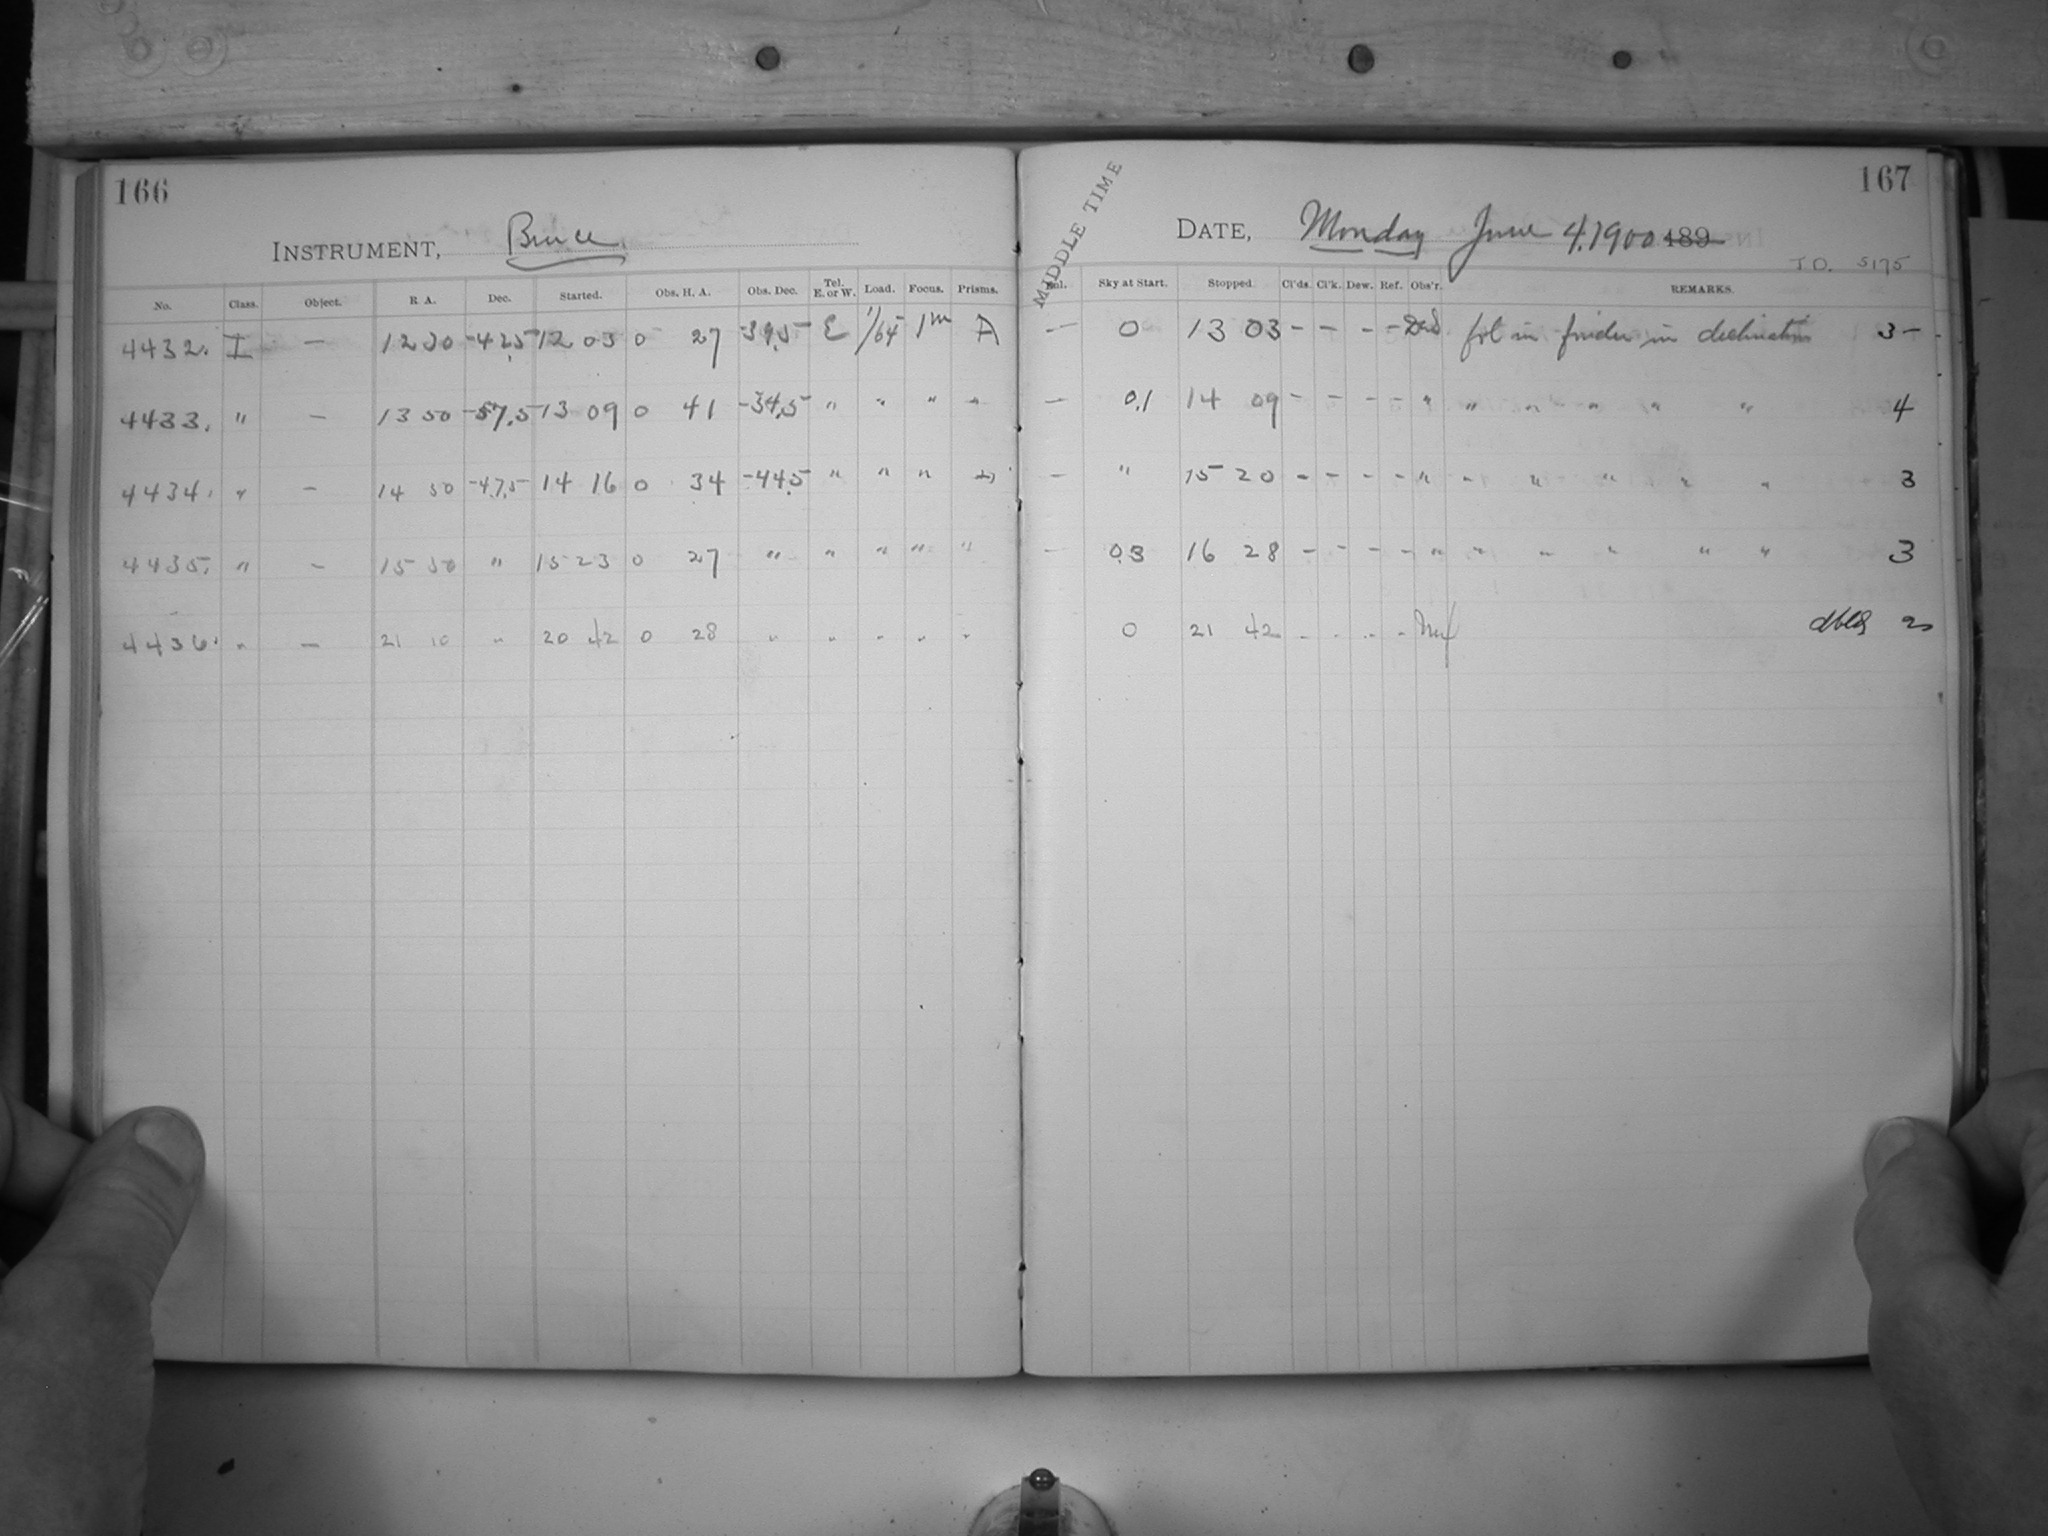 166
INSTRUMENT, Bruce
No. Class. Object. R. A. Dec. Started. Obs. H. A. Obs. Dec. Tel. E. or W. Load. Focus. Prisms.
4432. I — 12 30 -42.5 12 03 0 27 -39.5 E 1/64 1m A
4433. " — 13 50 -57.5 13 09 0 41 -34.5 " " " "
4434. " — 14 50 -47.5 14 16 0 34 -44.5 " " " "
4435. " — 15 50 " 15 23 0 27 " " " " "
4436. " — 21 10 " 20 42 0 28 " " " " "
MIDDLE TIME
167
DATE, Monday June 4, 1900 189
J D. 5175
Sky at Start. Stopped. Cl'ds. Cl'k. Dew. Ref. Obs'r. REMARKS.
— 0 13 03 - - - - fol in finder in declination 3 -
— 0.1 14 09 - - - - " " " " " " 4
— " 15 20 - - - - " " " " " " 3
— 0.3 16 28 - - - - " " " " " " 3
0 21 42 - - - - 2